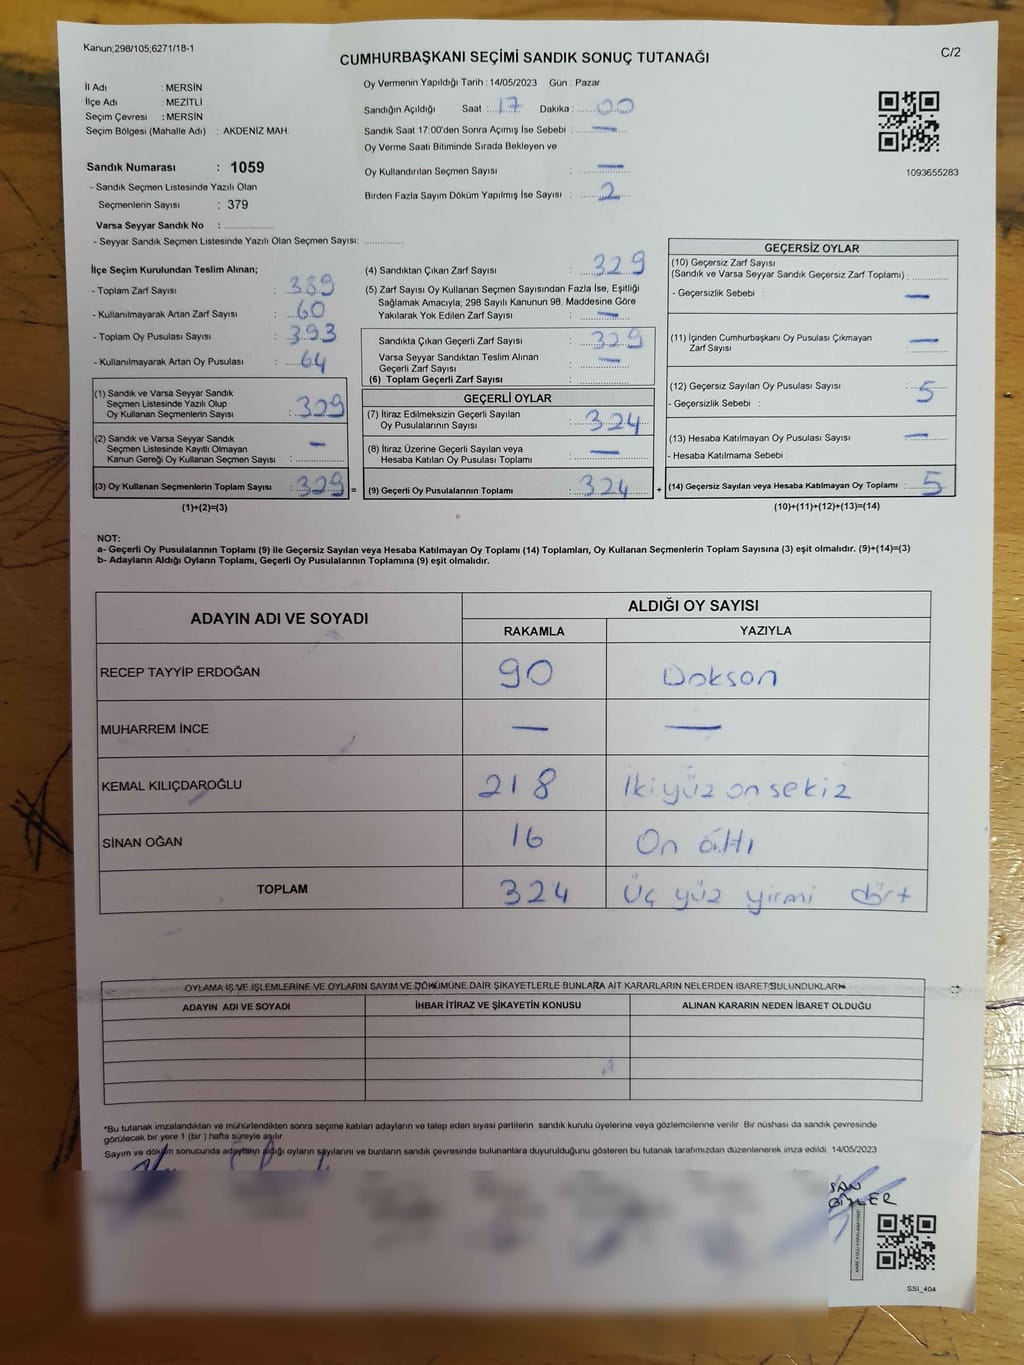 Kanun;298/105;6271/18-1
C/2
CUMHURBAŞKANI SEÇİMİ SANDIK SONUÇ TUTANAĞI
İl Adı : MERSİN
İlçe Adı : MEZİTLİ
Seçim Çevresi : MERSİN
Seçim Bölgesi (Mahalle Adı) : AKDENİZ MAH.
Sandık Numarası : 1059
- Sandık Seçmen Listesinde Yazılı Olan
Seçmenlerin Sayısı : 379
Varsa Seyyar Sandık No : ..................
- Seyyar Sandık Seçmen Listesinde Yazılı Olan Seçmen Sayısı: ..............
Oy Vermenin Yapıldığı Tarih : 14/05/2023 Gün : Pazar
Sandığın Açıldığı Saat : 17 Dakika : 00
Sandık Saat 17:00'den Sonra Açımış İse Sebebi : —
Oy Verme Saati Bitiminde Sırada Bekleyen ve
Oy Kullandırılan Seçmen Sayısı : —
Birden Fazla Sayım Döküm Yapılmış İse Sayısı : 2
1093655283
İlçe Seçim Kurulundan Teslim Alınan;
- Toplam Zarf Sayısı : 389
- Kullanılmayarak Artan Zarf Sayısı : 60
- Toplam Oy Pusulası Sayısı : 393
- Kullanılmayarak Artan Oy Pusulası : 64
(1) Sandık ve Varsa Seyyar Sandık
Seçmen Listesinde Yazılı Olup
Oy Kullanan Seçmenlerin Sayısı : 329
(2) Sandık ve Varsa Seyyar Sandık
Seçmen Listesinde Kayıtlı Olmayan
Kanun Gereği Oy Kullanan Seçmen Sayısı : —
(3) Oy Kullanan Seçmenlerin Toplam Sayısı : 329 =
(1)+(2)=(3)
(4) Sandıktan Çıkan Zarf Sayısı : 329
(5) Zarf Sayısı Oy Kullanan Seçmen Sayısından Fazla İse, Eşitliği
Sağlamak Amacıyla; 298 Sayılı Kanunun 98. Maddesine Göre
Yakılarak Yok Edilen Zarf Sayısı : —
Sandıkta Çıkan Geçerli Zarf Sayısı : 329
Varsa Seyyar Sandıktan Teslim Alınan
Geçerli Zarf Sayısı : —
(6) Toplam Geçerli Zarf Sayısı : ..............
GEÇERLİ OYLAR
(7) İtiraz Edilmeksizin Geçerli Sayılan
Oy Pusulalarının Sayısı : 324
(8) İtiraz Üzerine Geçerli Sayılan veya
Hesaba Katılan Oy Pusulası Toplamı : —
(9) Geçerli Oy Pusulalarının Toplamı : 324 +
GEÇERSİZ OYLAR
(10) Geçersiz Zarf Sayısı
(Sandık ve Varsa Seyyar Sandık Geçersiz Zarf Toplamı) : ..........
- Geçersizlik Sebebi : —
(11) İçinden Cumhurbaşkanı Oy Pusulası Çıkmayan
Zarf Sayısı : —
(12) Geçersiz Sayılan Oy Pusulası Sayısı : 5
- Geçersizlik Sebebi :
(13) Hesaba Katılmayan Oy Pusulası Sayısı : —
- Hesaba Katılmama Sebebi :
(14) Geçersiz Sayılan veya Hesaba Katılmayan Oy Toplamı : 5
(10)+(11)+(12)+(13)=(14)
NOT:
a- Geçerli Oy Pusulalarının Toplamı (9) ile Geçersiz Sayılan veya Hesaba Katılmayan Oy Toplamı (14) Toplamları, Oy Kullanan Seçmenlerin Toplam Sayısına (3) eşit olmalıdır. (9)+(14)=(3)
b- Adayların Aldığı Oyların Toplamı, Geçerli Oy Pusulalarının Toplamına (9) eşit olmalıdır.
ADAYIN ADI VE SOYADI ALDIĞI OY SAYISI
RAKAMLA YAZIYLA
RECEP TAYYİP ERDOĞAN 90 Doksan
MUHARREM İNCE — —
KEMAL KILIÇDAROĞLU 218 İki yüz on sekiz
SİNAN OĞAN 16 On altı
TOPLAM 324 Üç yüz yirmi dört
OYLAMA İŞ VE İŞLEMLERİNE VE OYLARIN SAYIM VE DÖKÜMÜNE DAİR ŞİKAYETLERLE BUNLARA AİT KARARLARIN NELERDEN İBARET BULUNDUKLARI
ADAYIN ADI VE SOYADI İHBAR İTİRAZ VE ŞİKAYETİN KONUSU ALINAN KARARIN NEDEN İBARET OLDUĞU
*Bu tutanak imzalandıktan ve mühürlendikten sonra seçime katılan adayların ve talep eden siyasi partilerin sandık kurulu üyelerine veya gözlemcilerine verilir. Bir nüshası da sandık çevresinde
görülecek bir yere 1 (bir ) hafta süreyle asılır.
Sayım ve döküm sonucunda adayların aldığı oyların sayılarını ve bunların sandık çevresinde bulunanlara duyurulduğunu gösteren bu tutanak tarafımızdan düzenlenerek imza edildi. 14/05/2023
SSI_404